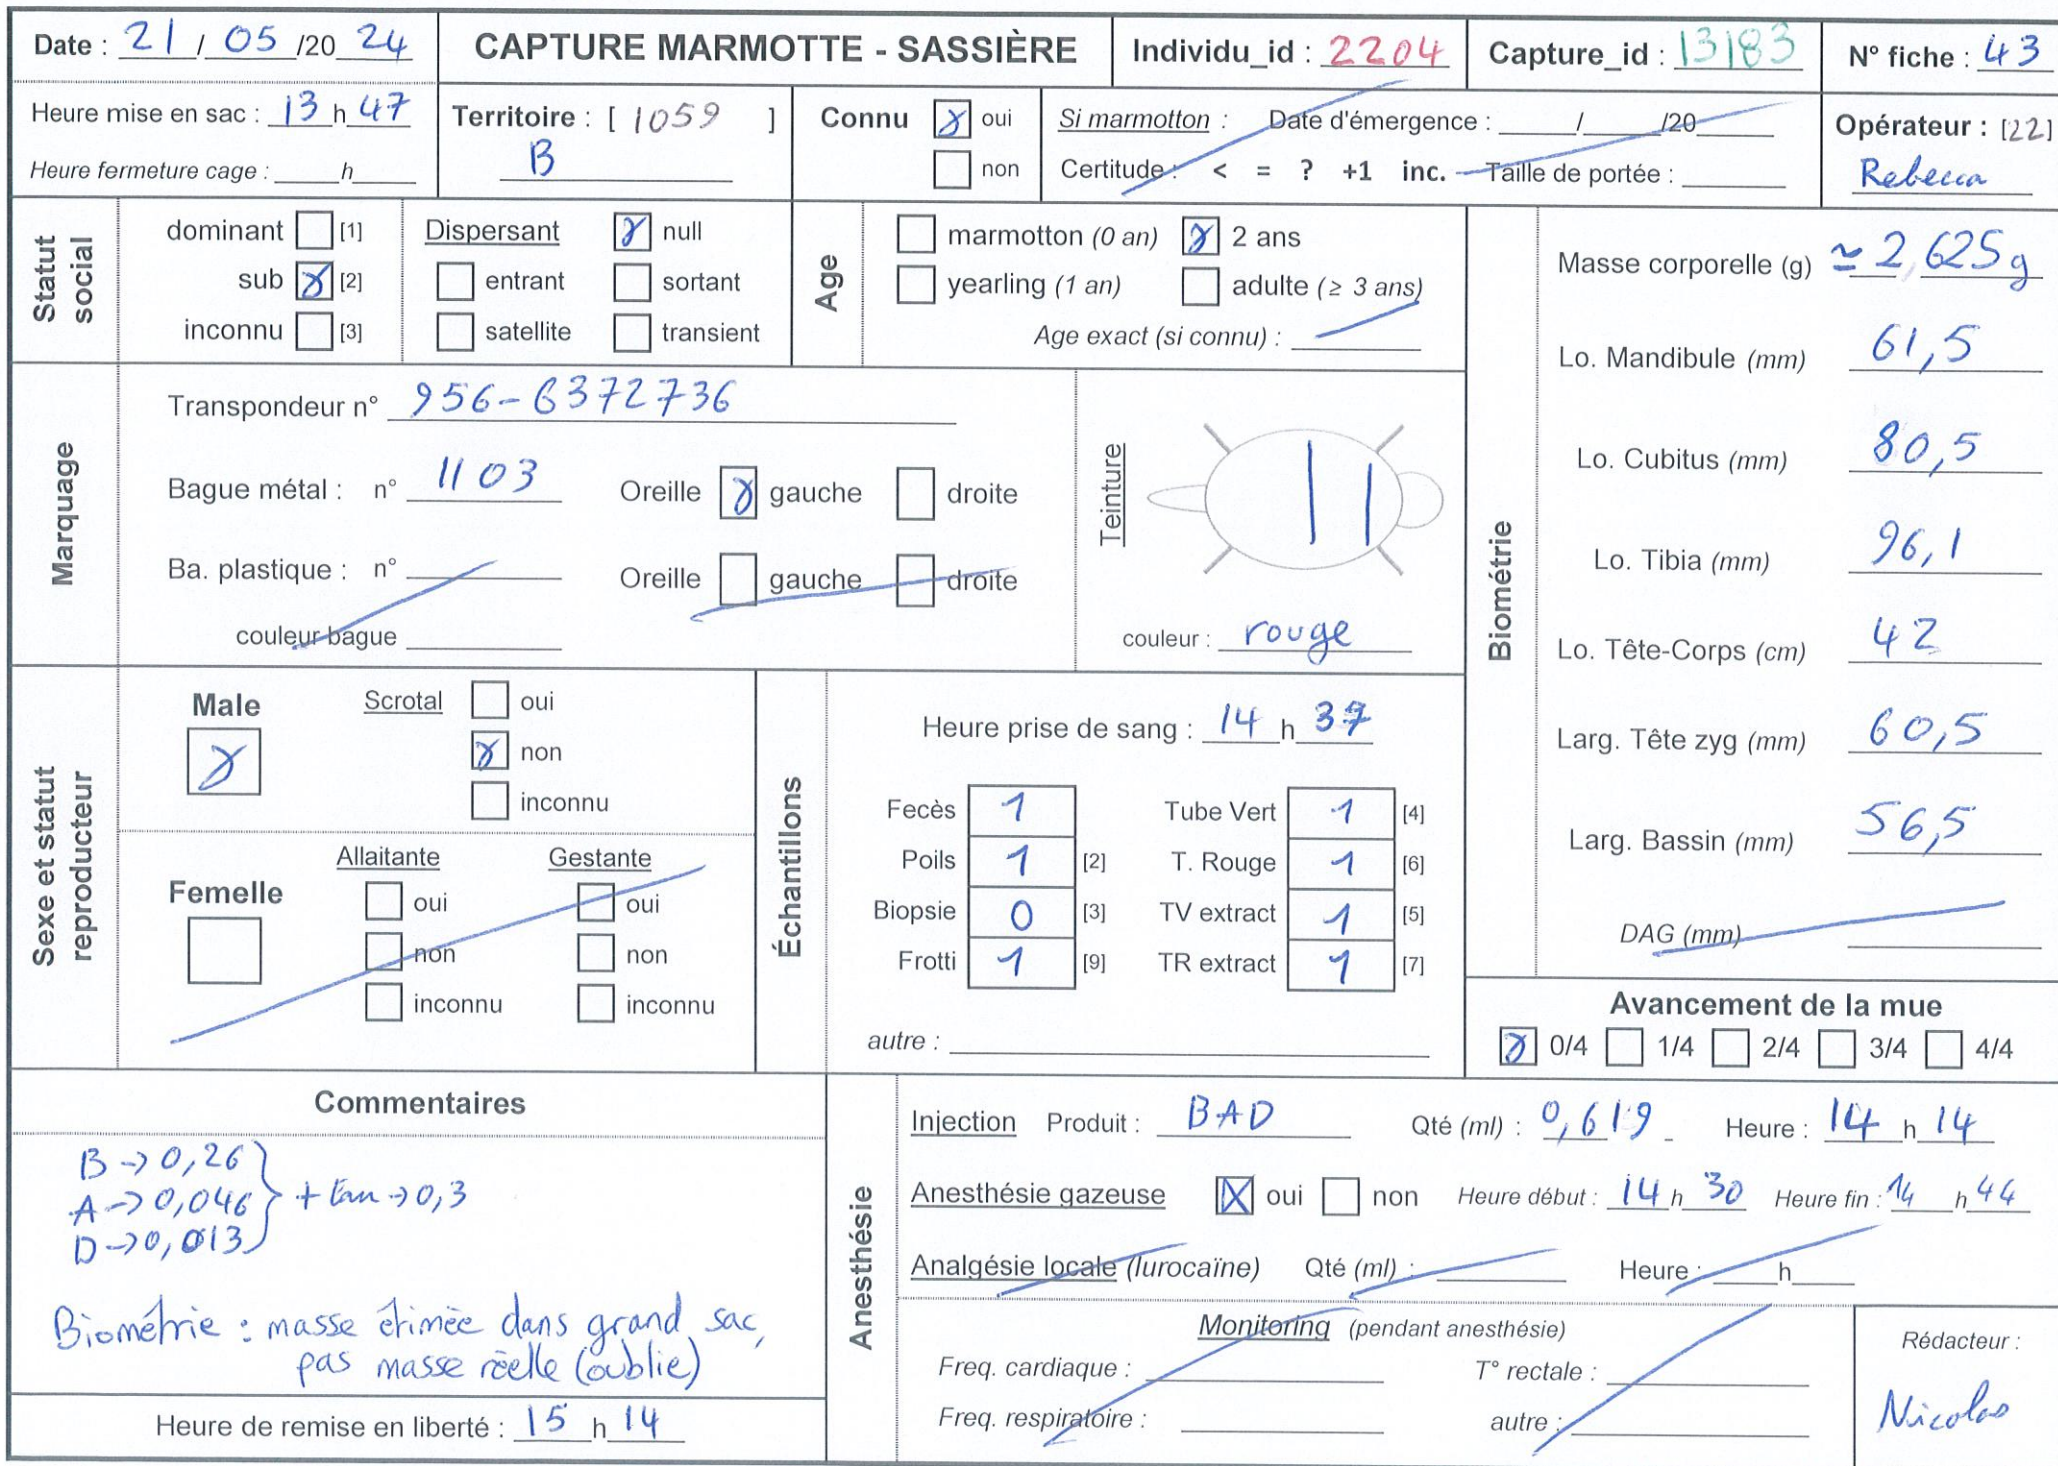 Date : 21 / 05 /20 24
CAPTURE MARMOTTE - SASSIÈRE
Individu_id : 2204
Capture_id : 13183
N° fiche : 43
Heure mise en sac : 13 h 47
Heure fermeture cage : ____h____
Territoire : [ 1059 ]
B
Connu oui
non
Si marmotton : Date d'émergence : ____/____/20____
Certitude : < = ? +1 inc. Taille de portée : ____
Opérateur : [22]
Rebecca
Statut social
dominant [1]
sub [2]
inconnu [3]
Dispersant null
entrant sortant
satellite transient
Age
marmotton (0 an) 2 ans
yearling (1 an) adulte (≥ 3 ans)
Age exact (si connu) :
Marquage
Transpondeur n° 956-6372736
Bague métal : n° 1103 Oreille gauche droite
Ba. plastique : n° ____ Oreille gauche droite
couleur bague
Teinture
couleur : rouge
Biométrie
Masse corporelle (g) ≃ 2,625g
Lo. Mandibule (mm) 61,5
Lo. Cubitus (mm) 80,5
Lo. Tibia (mm) 96,1
Lo. Tête-Corps (cm) 42
Larg. Tête zyg (mm) 60,5
Larg. Bassin (mm) 56,5
DAG (mm)
Sexe et statut reproducteur
Male
Scrotal oui
non
inconnu
Femelle
Allaitante Gestante
oui oui
non non
inconnu inconnu
Échantillons
Heure prise de sang : 14 h 37
Fecès 1 Tube Vert 1 [4]
Poils 1 [2] T. Rouge 1 [6]
Biopsie 0 [3] TV extract 1 [5]
Frotti 1 [9] TR extract 1 [7]
autre :
Avancement de la mue
0/4 1/4 2/4 3/4 4/4
Commentaires
B → 0,26
A → 0,046 + eau → 0,3
D → 0,013
Biométrie : masse étimée dans grand sac,
pas masse réelle (oublie)
Heure de remise en liberté : 15 h 14
Anesthésie
Injection Produit : BAD Qté (ml) : 0,619 Heure : 14 h 14
Anesthésie gazeuse oui non Heure début : 14 h 30 Heure fin : 14 h 44
Analgésie locale (lurocaïne) Qté (ml) : ____ Heure : ____h____
Monitoring (pendant anesthésie)
Freq. cardiaque : ____ T° rectale : ____
Freq. respiratoire : ____ autre : ____
Rédacteur :
Nicolas